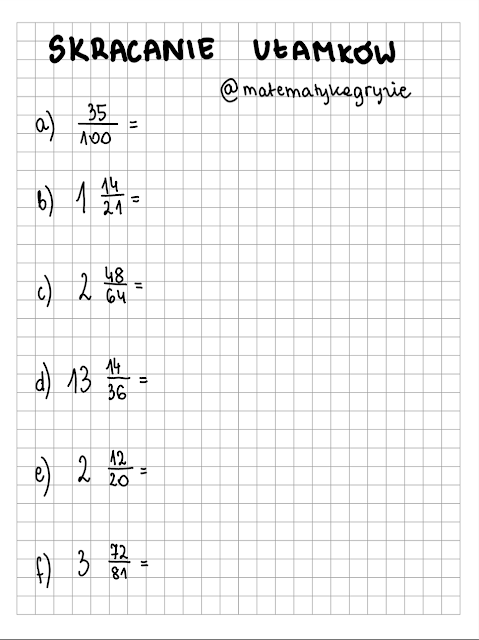 SKRACANIE UŁAMKÓW
@matematykagryzie
a) 35/100 =
b) 1 14/21 =
c) 2 48/64 =
d) 13 14/36 =
e) 2 12/20 =
f) 3 72/81 =